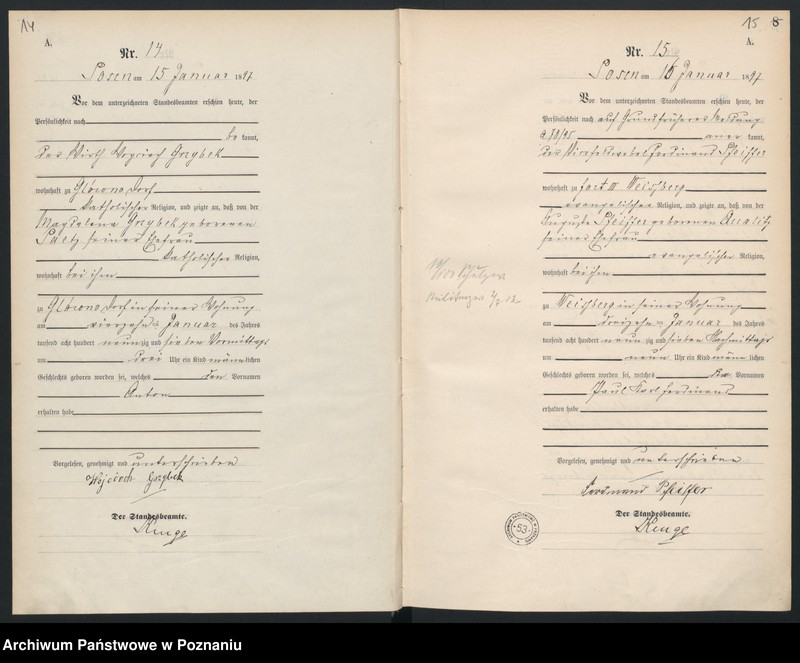 14
A.
Nr. 14
Posen am 15 Januar 1897
Vor dem unterzeichneten Standesbeamten erschien heute, der
Persönlichkeit nach
be kannt,
der Wirth Woyciech Grzybek
wohnhaft zu Glowno Dorf
katholischer Religion, und zeigte an, daß von der
Magdalena Grzybek geborenen
seiner Ehefrau
katholischer Religion,
wohnhaft bei ihm
zu Glowno Dorf in seiner Wohnung
am vierzehnten Januar des Jahres
tausend acht hundert neunzig und sieben Vormittags
um drei Uhr ein Kind männlichen
Geschlechts geboren worden sei, welches den Vornamen
Anton
erhalten habe
Vorgelesen, genehmigt und unterschrieben
Wojciech Grzybek
Der Standesbeamte.
15 8
A.
Nr. 15
Posen am 15 Januar 1897
Vor dem unterzeichneten Standesbeamten erschien heute, der
Persönlichkeit nach auf Grund früherer Meldung
aner kannt,
der Ferdinand Pfeiffer
wohnhaft zu Fort III Weissberg
evangelischer Religion, und zeigte an, daß von der
Auguste Pfeiffer geborenen
seiner Ehefrau
evangelischer Religion,
wohnhaft bei ihm
zu Weissberg in seiner Wohnung
am dreizehnten Januar des Jahres
tausend acht hundert neunzig und sieben Nachmittags
um neun Uhr ein Kind männlichen
Geschlechts geboren worden sei, welches die Vornamen
Paul Karl Ferdinand
erhalten habe
Vorgelesen, genehmigt und unterschrieben
Ferdinand Pfeiffer
Der Standesbeamte.
53
Archiwum Państwowe w Poznaniu